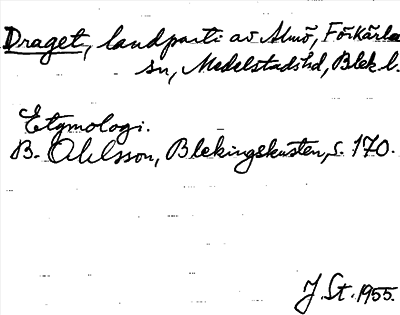 Draget, landparti av Almö, Förkärla
sn, Medelstads hd, Blek. l.
Etymologi.
B. Ohlsson, Blekingskusten, s. 170.
J. St. 1955.